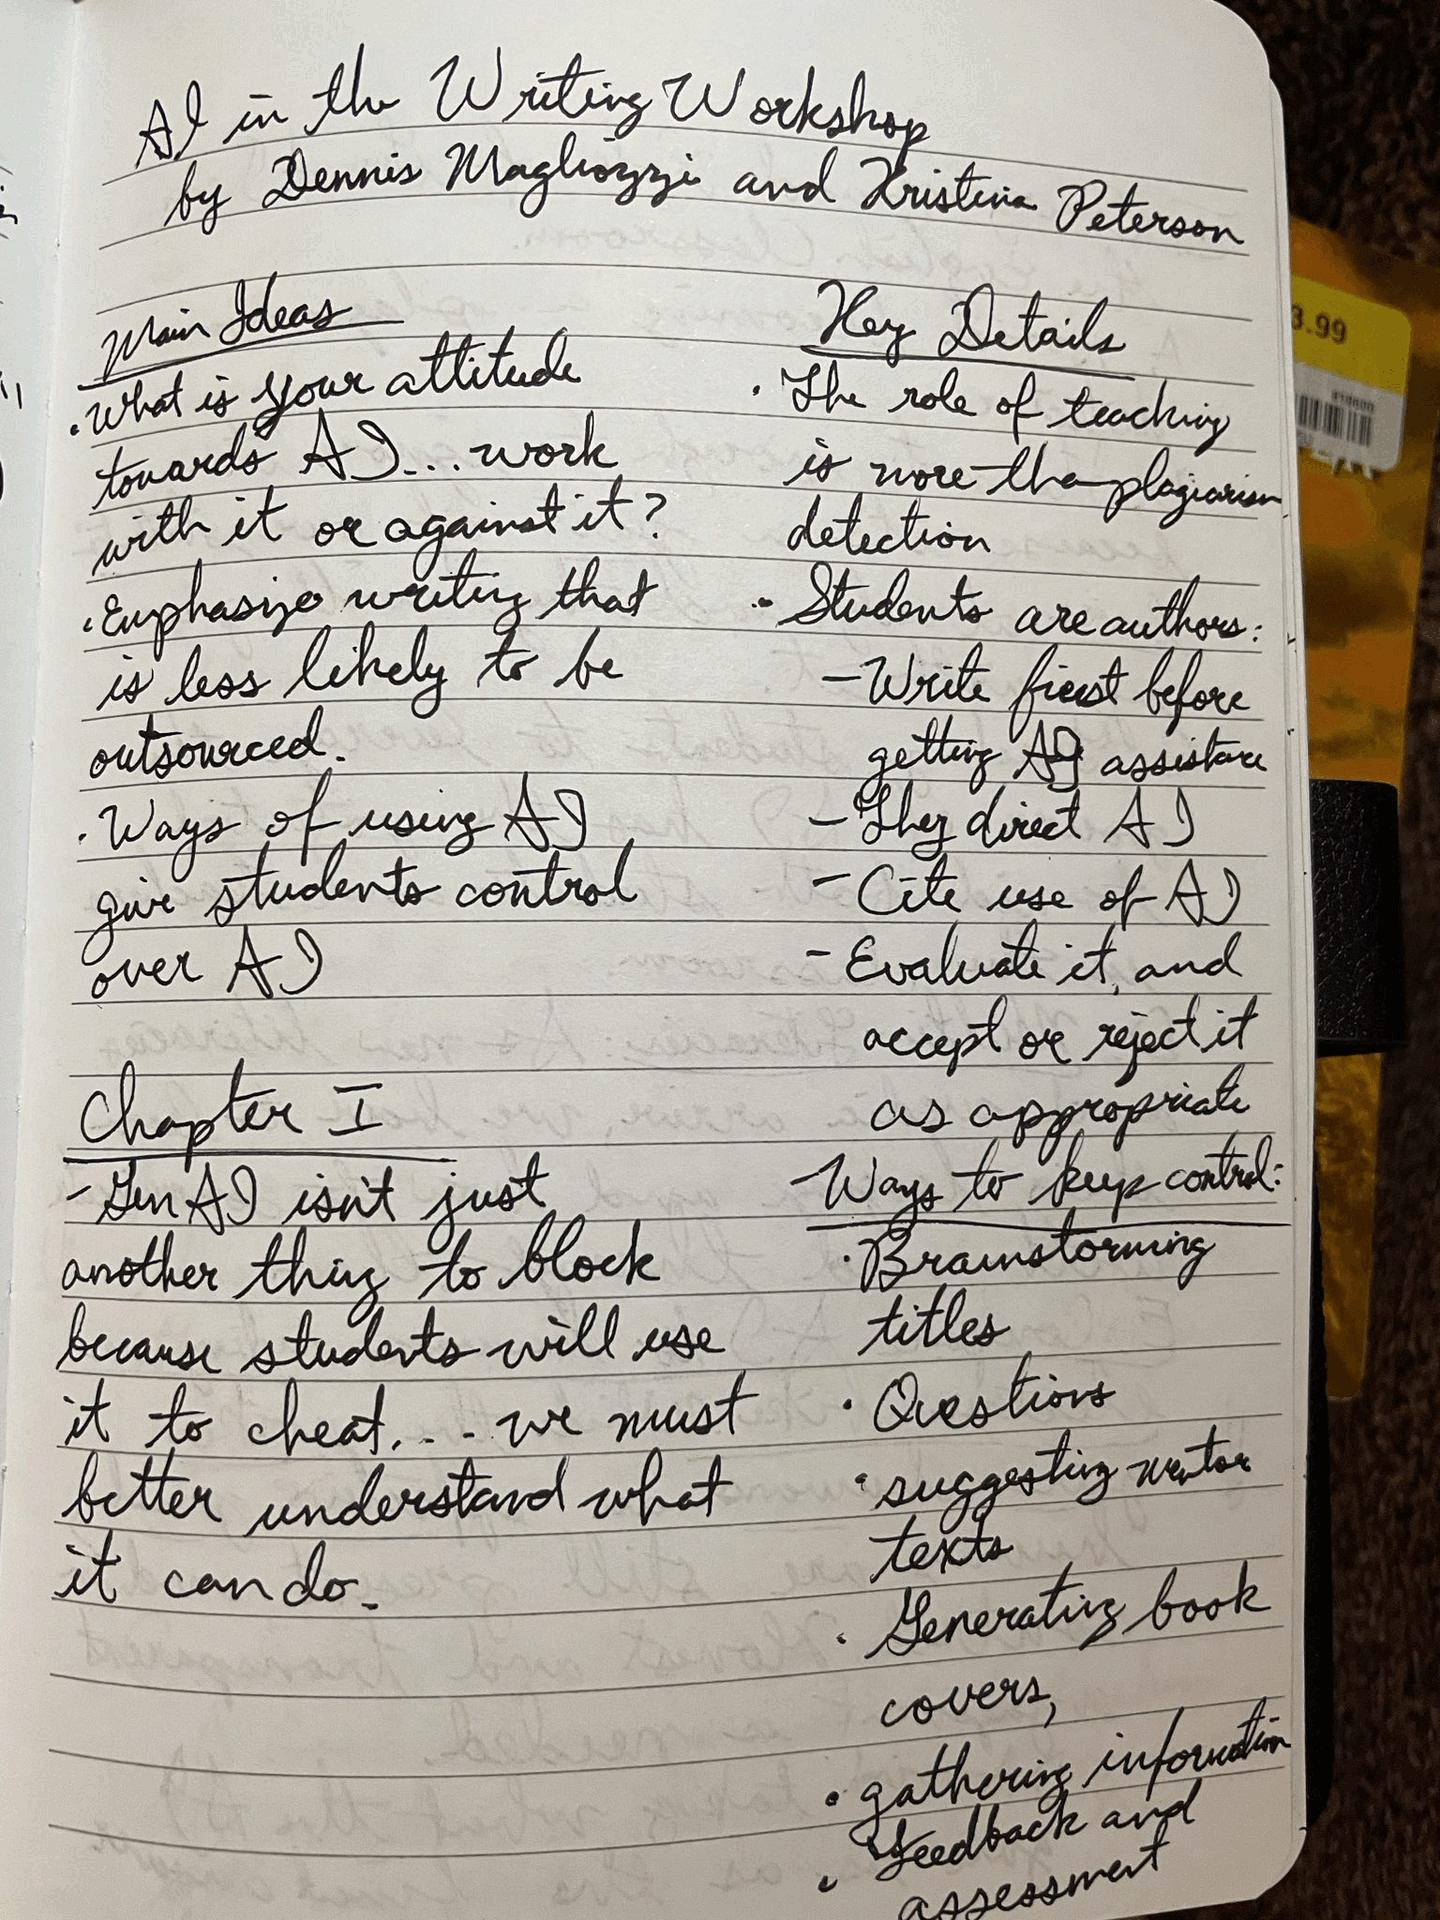 AI in the Writing Workshop
by Dennis Magliozzi and Kristina Peterson
Main Ideas
· What is your attitude
towards AI... work
with it or against it?
· Emphasize writing that
is less likely to be
outsourced.
· Ways of using AI
give students control
over AI
Chapter I
- Gen AI isn't just
another thing to block
because students will use
it to cheat... we must
better understand what
it can do.
Key Details
· The role of teaching
is more than plagiarism
detection
· Students are authors:
- Write first before
getting AI assistance
- They direct AI
- Cite use of AI
- Evaluate it, and
accept or reject it
as appropriate
- Ways to keep control:
· Brainstorming
titles
· Questions
· suggesting mentor
texts
· Generating book
covers,
· gathering information
· Feedback and
assessment
3.99